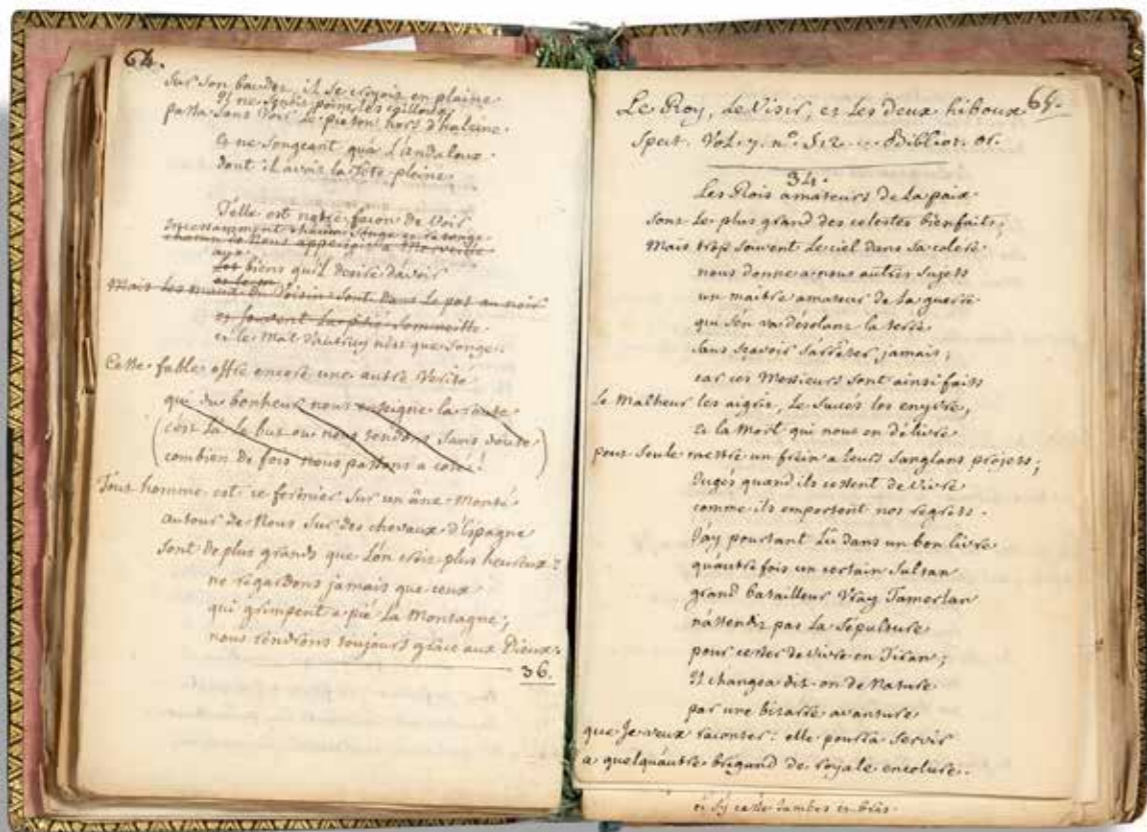 64.
Sur son baudet, il se croyoit en plaine
Il ne sentit point les cailloux
passa sans voir le pieton hors d'haleine
Et ne songeant qu'a L'andaloux
dont il avoit la tête pleine.
Telle est notre façon de Voir
chacun songe
aux
Les biens qu'il desire d'avoir
Mais les maux du Voisin sont dans le pot au noir
et souvent la pitié sommeille
et le mal d'autruy n'est que songe.
Cette fable offre encore une autre Verité
qui du bonheur nous enseigne la route
(c'est là le but ou nous tendons sans doute
combien de fois nous passons a coté!)
Tout homme est ce fermier sur un âne monté
autour de Nous sur des chevaux d'Espagne
sont de plus grands que l'on croit plus heureux:
ne regardons jamais que ceux
qui grimpent a pié la Montagne;
nous rendrons toujours grace aux Dieux.
36.
Le Roy, Le Visir, et Les deux hiboux 65.
Spect. Vol. 7. n°. 512 Bibliot. or.
34.
Les Rois amateurs de la paix
sont le plus grand des celestes bienfaits;
Mais trop souvent le ciel dans sa colere
nous donne a nous autres sujets
un maitre amateur de la guerre
qui s'en va désolant la terre
sans sçavoir s'arrêter jamais;
car ces Messieurs sont ainsi faits
Le Malheur les aigrit, Le succés les enyvre,
Et la Mort qui nous en délivre
peut seule mettre un frein a leurs sanglans projets;
Jugés quand ils cessent de vivre
comme ils emportent nos regrets.
J'ay pourtant Lu dans un bon livre
qu'autre fois un certain sultan
grand batailleur Vray Tamerlan
n'attendit pas la sepulture
pour cesser de vivre en Tiran;
Il changea dit-on de Nature
par une bizarre avanture
que Je veux raconter: elle pourra servir
a quelqu'autre brigand de royale encolure.
jambes et bras.